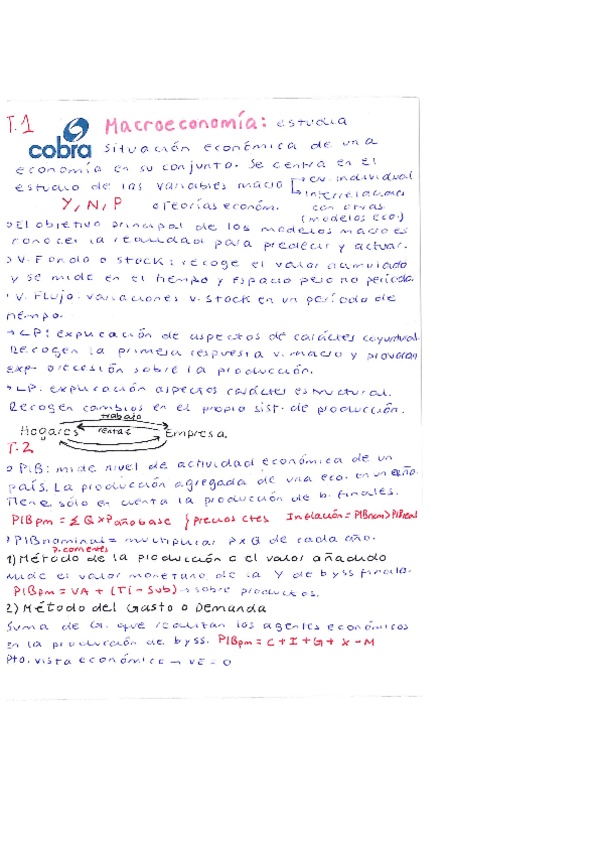 T.1 Macroeconomía: estudia
cobra situación económica de una
economía en su conjunto. Se centra en el
estudio de las variables macro → ev. individual
↳ interrelaciones
Y, N, P o Teorías económ. con otras
(modelos eco.)
El objetivo principal de los modelos macro es
conocer la realidad para predecir y actuar.
V. Fondo o stock: recoge el valor acumulado
y se mide en el tiempo y espacio pero no período.
V. Flujo: variaciones v. stock en un período de
tiempo.
→ CP: explicación de aspectos de carácter coyuntural.
Recogen la primera respuesta v. macro y provocan
exp. o recesión sobre la producción.
LP: explicación aspectos carácter estructural.
Recogen cambios en el propio sist. de producción.
trabajo
Hogares rentas Empresa.
T.2
PIB: mide nivel de actividad económica de un
país. La producción agregada de una eco. en un año.
Tiene sólo en cuenta la producción de b. finales.
PIBpm = Σ Q x P año base } precios ctes Inflación = PIBnom > PIBreal
PIBnominal = multiplicar P x Q de cada año.
P. corrientes
1) Método de la producción o el valor añadido
Mide el valor monetario de la Y de byss finale.
PIBpm = VA + (Ti - Sub) → sobre productos.
2) Método del Gasto o Demanda
Suma de G. que realizan los agentes económicos
en la producción de byss. PIBpm = C + I + G + X - M
Pto. vista económico → VE = 0